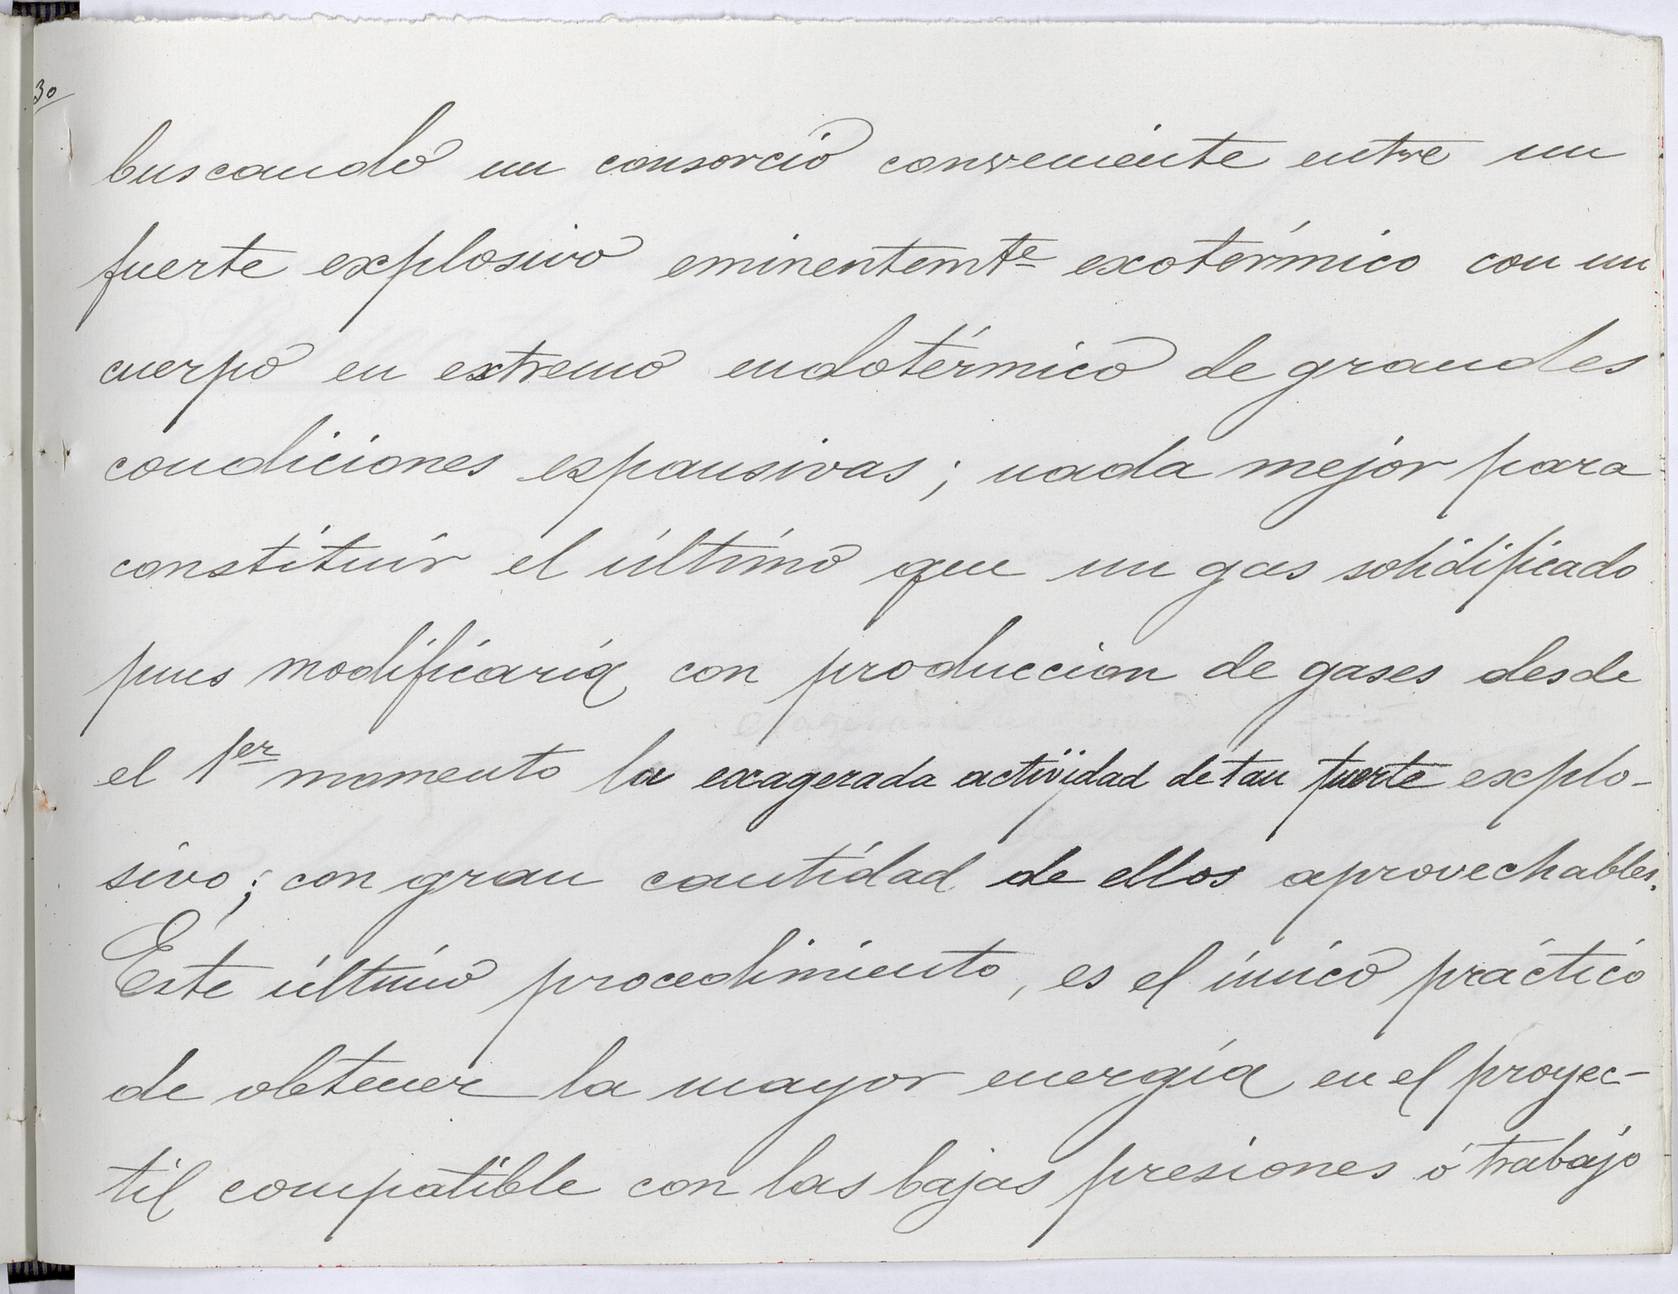 30
buscando un consorcio conveniente entre un
fuerte explosivo eminentemte exotérmico con un
cuerpo en extremo endotérmico de grandes
condiciones espansivas; nada mejor para
constituir el último que un gas solidificado
pues modificaría con produccion de gases desde
el 1er momento la exagerada actividad de tan fuerte explo-
sivo; con gran cantidad de ellos aprovechables.
Este último procedimiento, es el único práctico
de obtener la mayor energía en el proyec-
til compatible con las bajas presiones ó trabajo